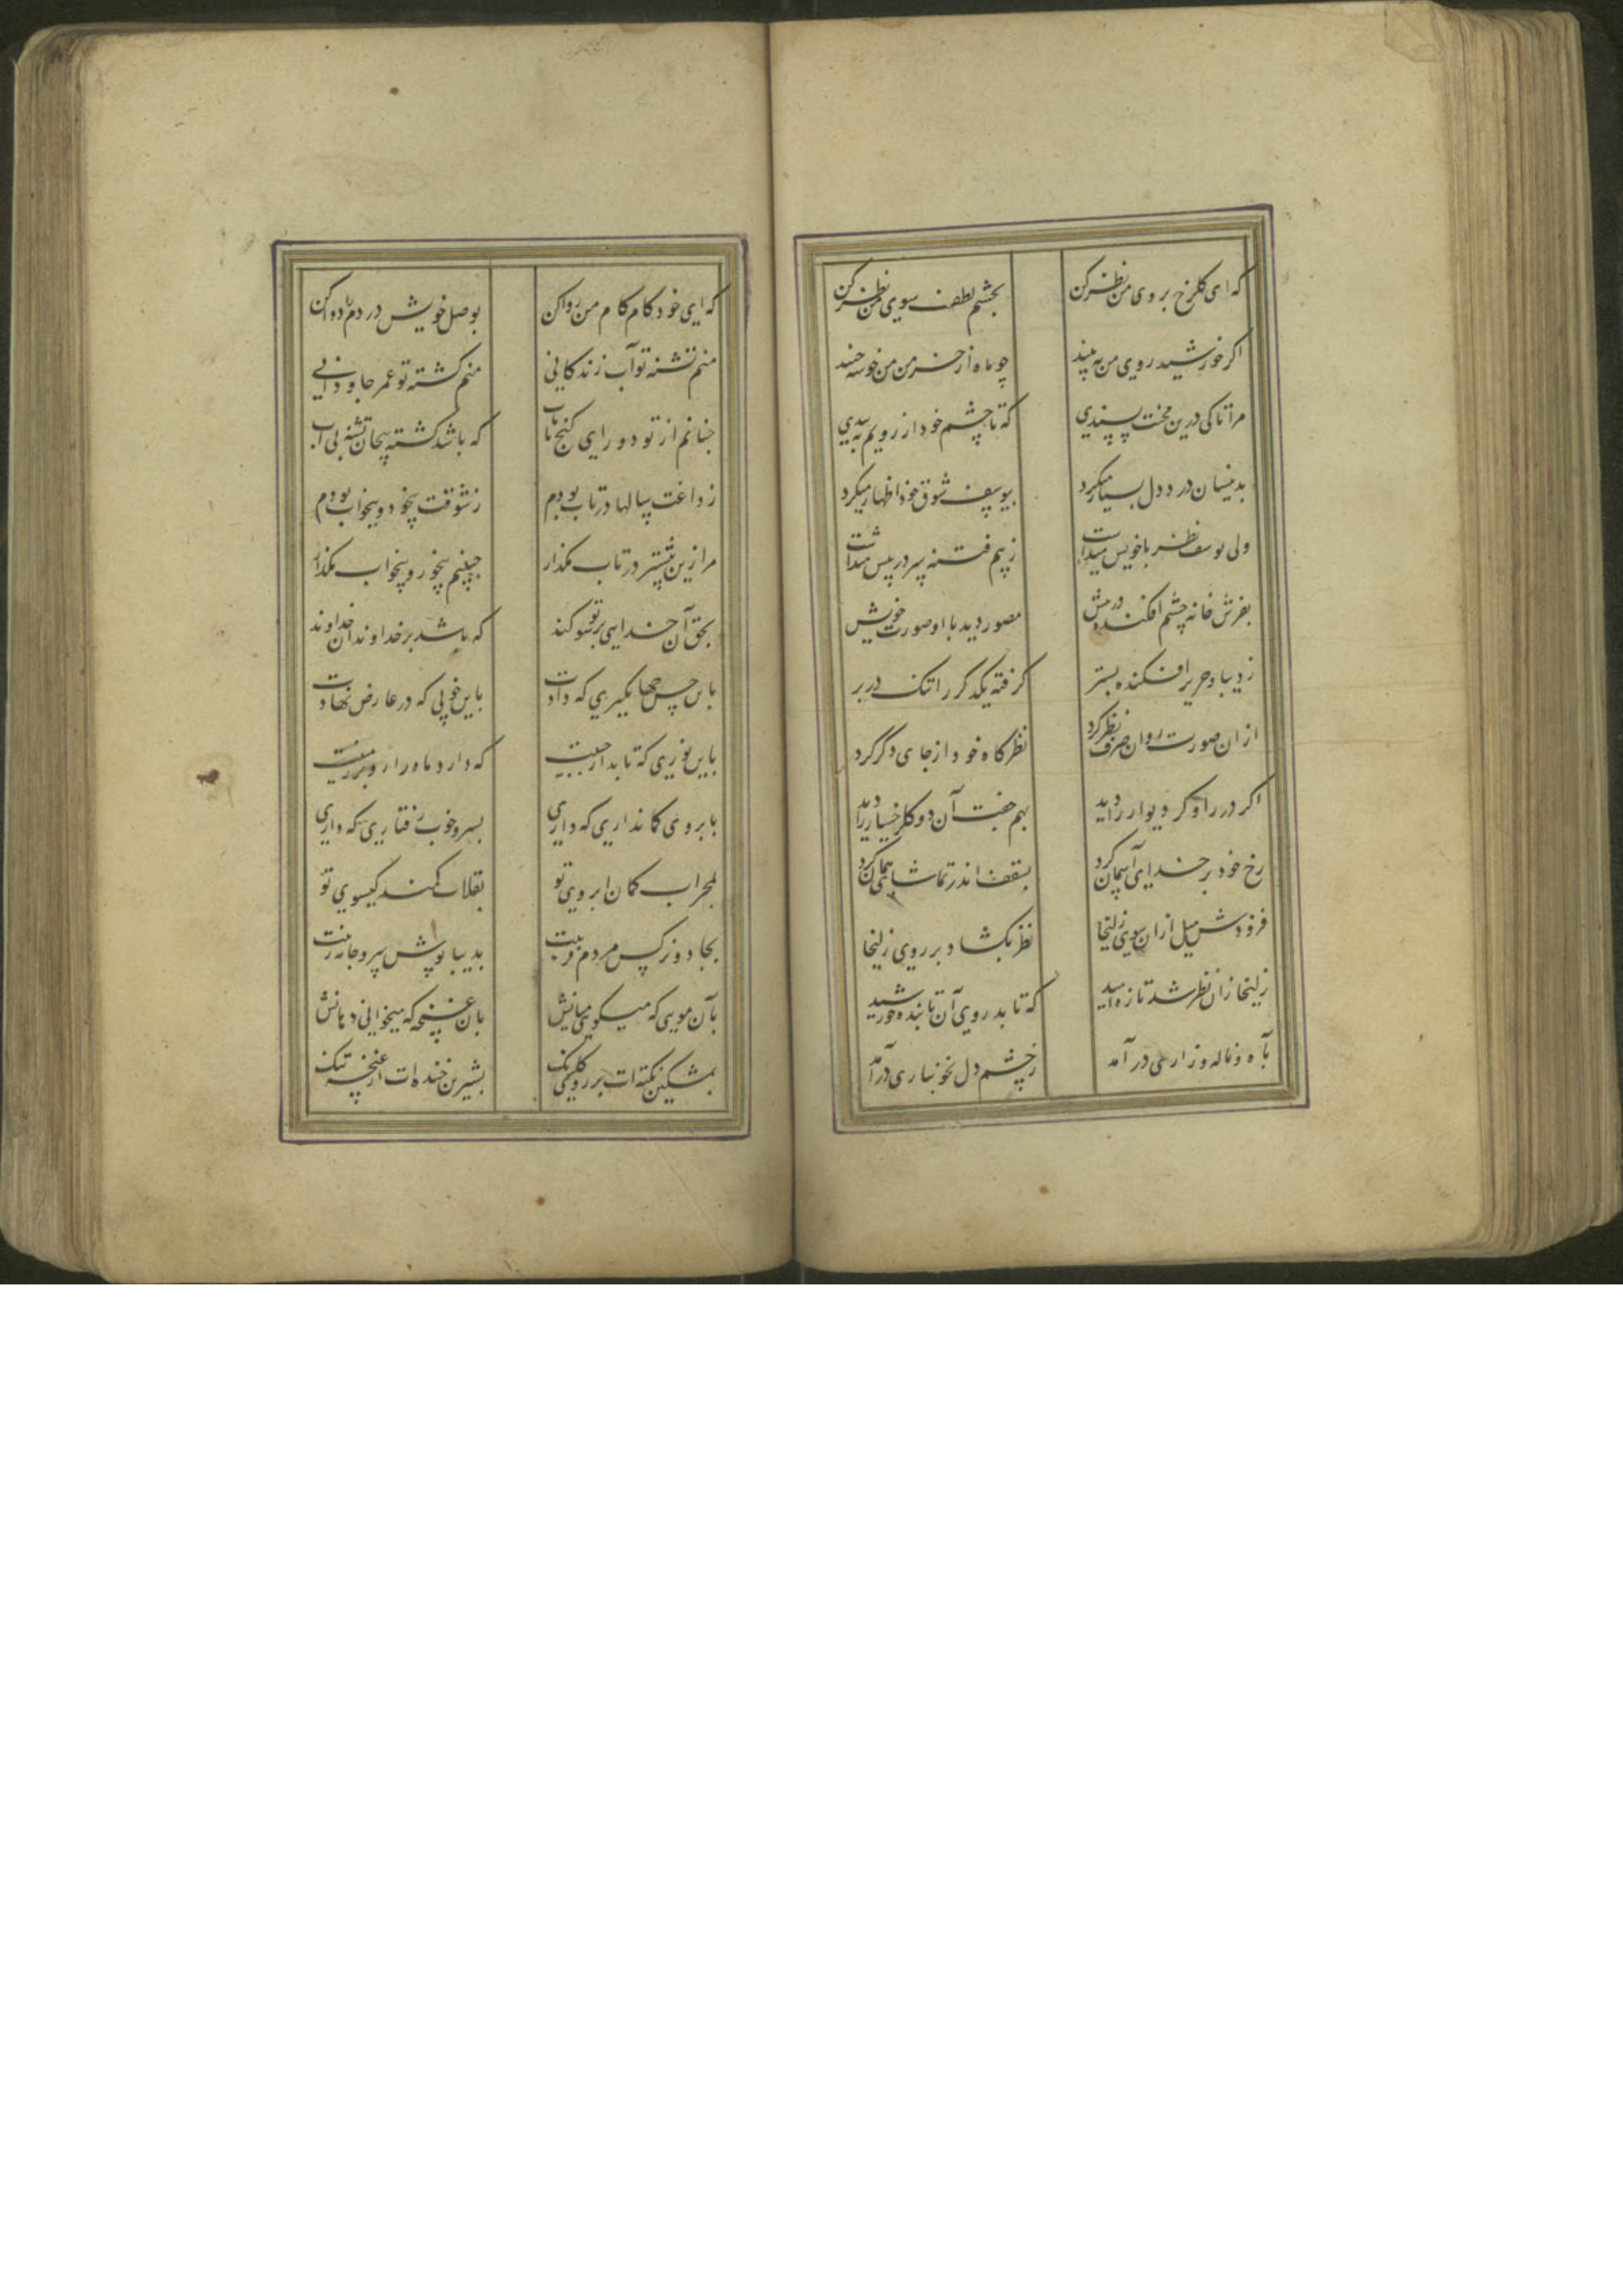 که ای گلرخ بروی من نظر کن بچشم لطف سوی من نظر کن
اگر خورشید روی من به بیند چو ماه از خرمن من خوشه چیند
مرا تا کی درین محنت پسندی که تا چشم خود از رویم به بندی
بدینسان درد دل بسیار میکرد بیوسف شوق خود اظهار میکرد
ولی یوسف نظر با خویش میداشت ز بیم فتنه سر در پیش میداشت
بفرش خانه چشم افکنده در پیش مصور دید با او صورت خویش
ز دیبا و حریر افکنده بستر گرفته یکدگر را تنک در بر
ازان صورت روان صرف نظر کرد نظرگاه خود از جای دگر کرد
اگر در را و گر دیوار را دید بهم جفت آن دو گلرخسار را دید
رخ خود بر خدای آسمان کرد بسقف اندر تماشا همان کرد
فزودش میل ازان سوی زلیخا نظر بگشاد بر روی زلیخا
زلیخا زان نظر شد تازه امید که تابد روی آن تابنده خورشید
بآه و ناله و زاری در آمد ز چشم دل بخونباری در آمد
که ای خود کام کام من روا کن بوصل خویش دردم را دوا کن
منم تشنه تو آب زندگانی منم کشته تو عمر جاودانی
چنانم از تو دور ای گنج نایاب که باشد کشته بیجان تشنه بی آب
ز داغت سالها در تاب بودم ز شوقت بیخود و بیخواب بودم
مرا زین بیشتر در تاب مگذار چنینم بیخور و بیخواب مگذار
بحق آن خدایی بر تو سوگند که باشد بر خداوندان خداوند
باین حسن جهانگیری که دادت باین خوبی که در عارض نهادت
باین نوری که تابد از جبینت که دارد ماه را رو بر زمینت
بابروی کمانداری که داری بسرو خوب رفتاری که داری
بمحراب کمان ابروی تو بقلاب کمند گیسوی تو
بجادو نرگس مردم فریبت بدیبا پوش سرو جامه زیبت
بآن مویی که میگویی میانش بآن غنچه که میخوانی دهانش
بمشکین نکته ات بر روی گلرنگ بشیرین خنده ات از غنچه تنک